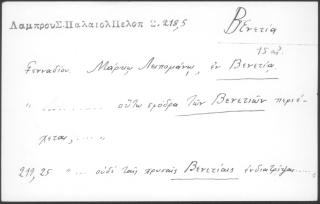 Λαμπρου Σ. Παλαιολ Πελοπ 2. 218,5
Βενετία
15 αἰ.
Γενναδίου. Μάρκῳ Λιπομάνῳ, ἐν Βενετίᾳ
" ..... οὕτω σφόδρα τῶν Βενετιῶν περιέ-
χεται, .....
219,25 " ... οὐδὲ ταῖς χρυσαῖς Βενετίαις ἐνδιατρίψαι.....